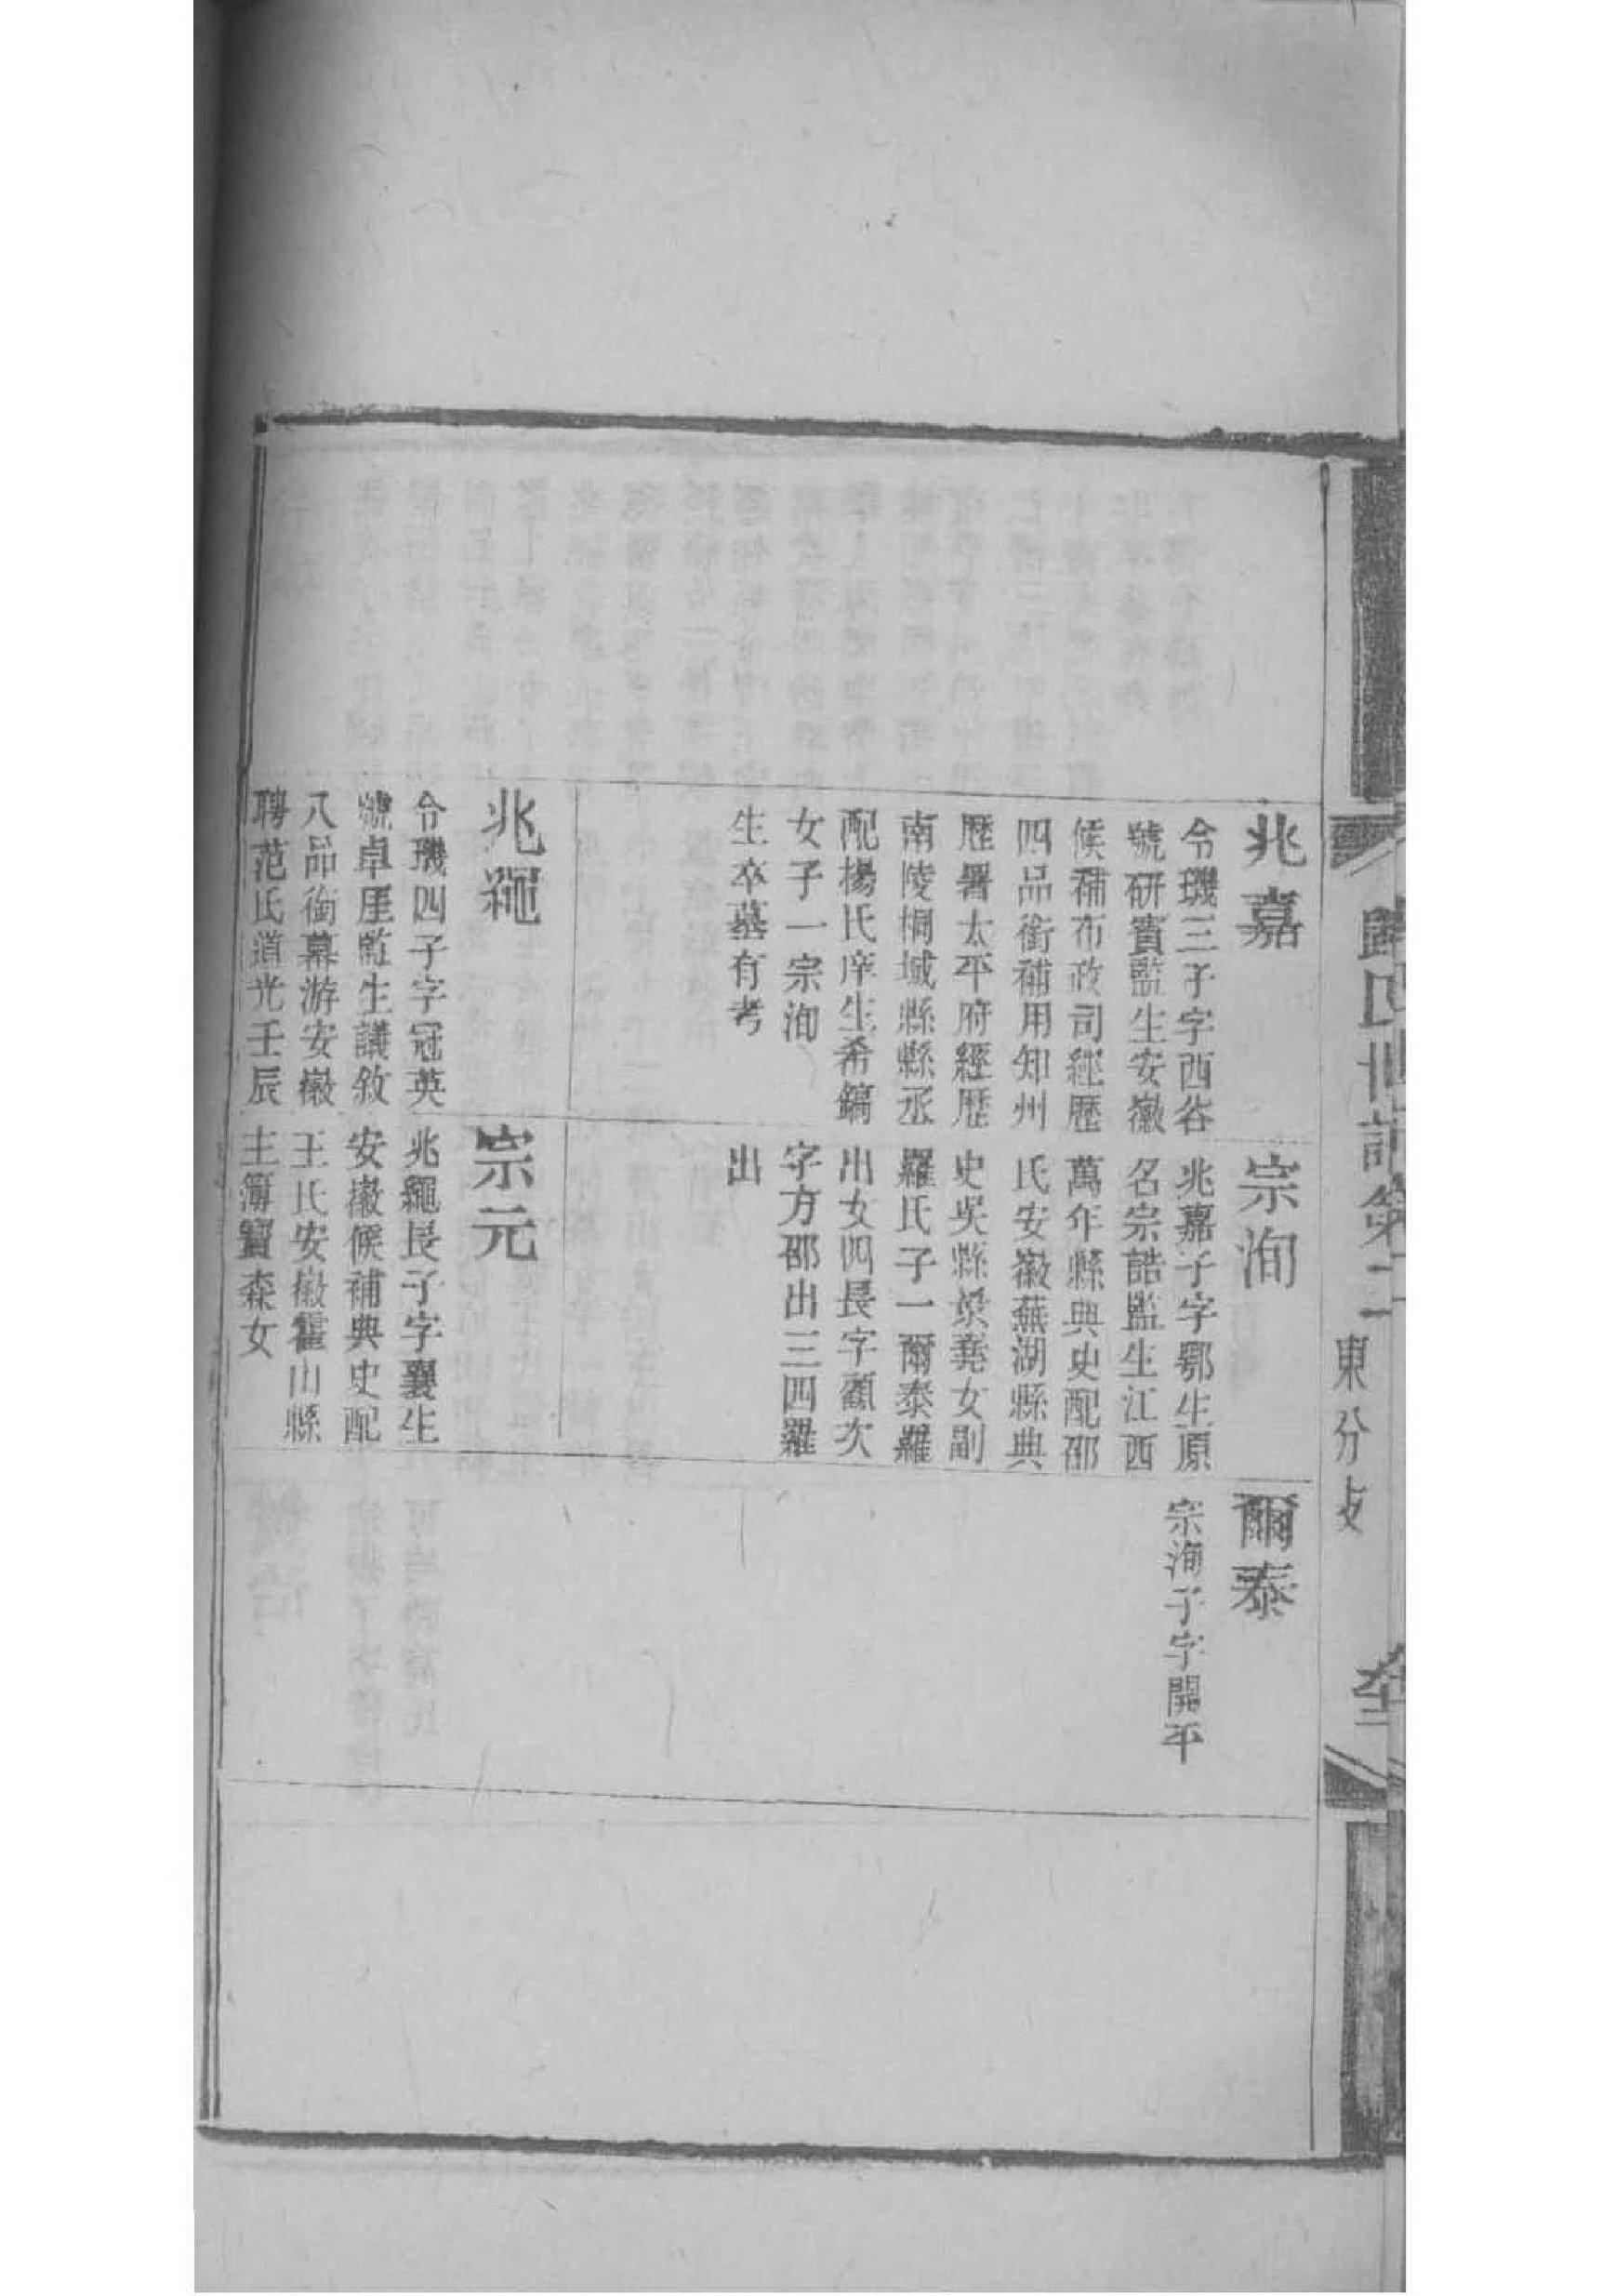 歸氏世譜卷二
東分支
兆嘉
令璣三子字西谷
號研賓監生安徽
候補布政司經歷
四品銜補用知州
歷署太平府經歷
南陵桐城縣縣丞
配楊氏庠生希鎬
女子一宗洵
生卒墓有考
宗洵
兆嘉子字鄂生原
名宗誥監生江西
萬年縣典史配邵
氏安徽蕪湖縣典
史吳縣榮堯女副
羅氏子一爾泰羅
出女四長字顧次
字方邵出三四羅
出
爾泰
宗洵子字開平
兆繩
令璣四子字冠英
號卓厓監生議敘
八品銜幕游安徽
聘范氏道光壬辰
宗元
兆繩長子字襄生
安徽候補典史配
王氏安徽霍山縣
主簿寶森女